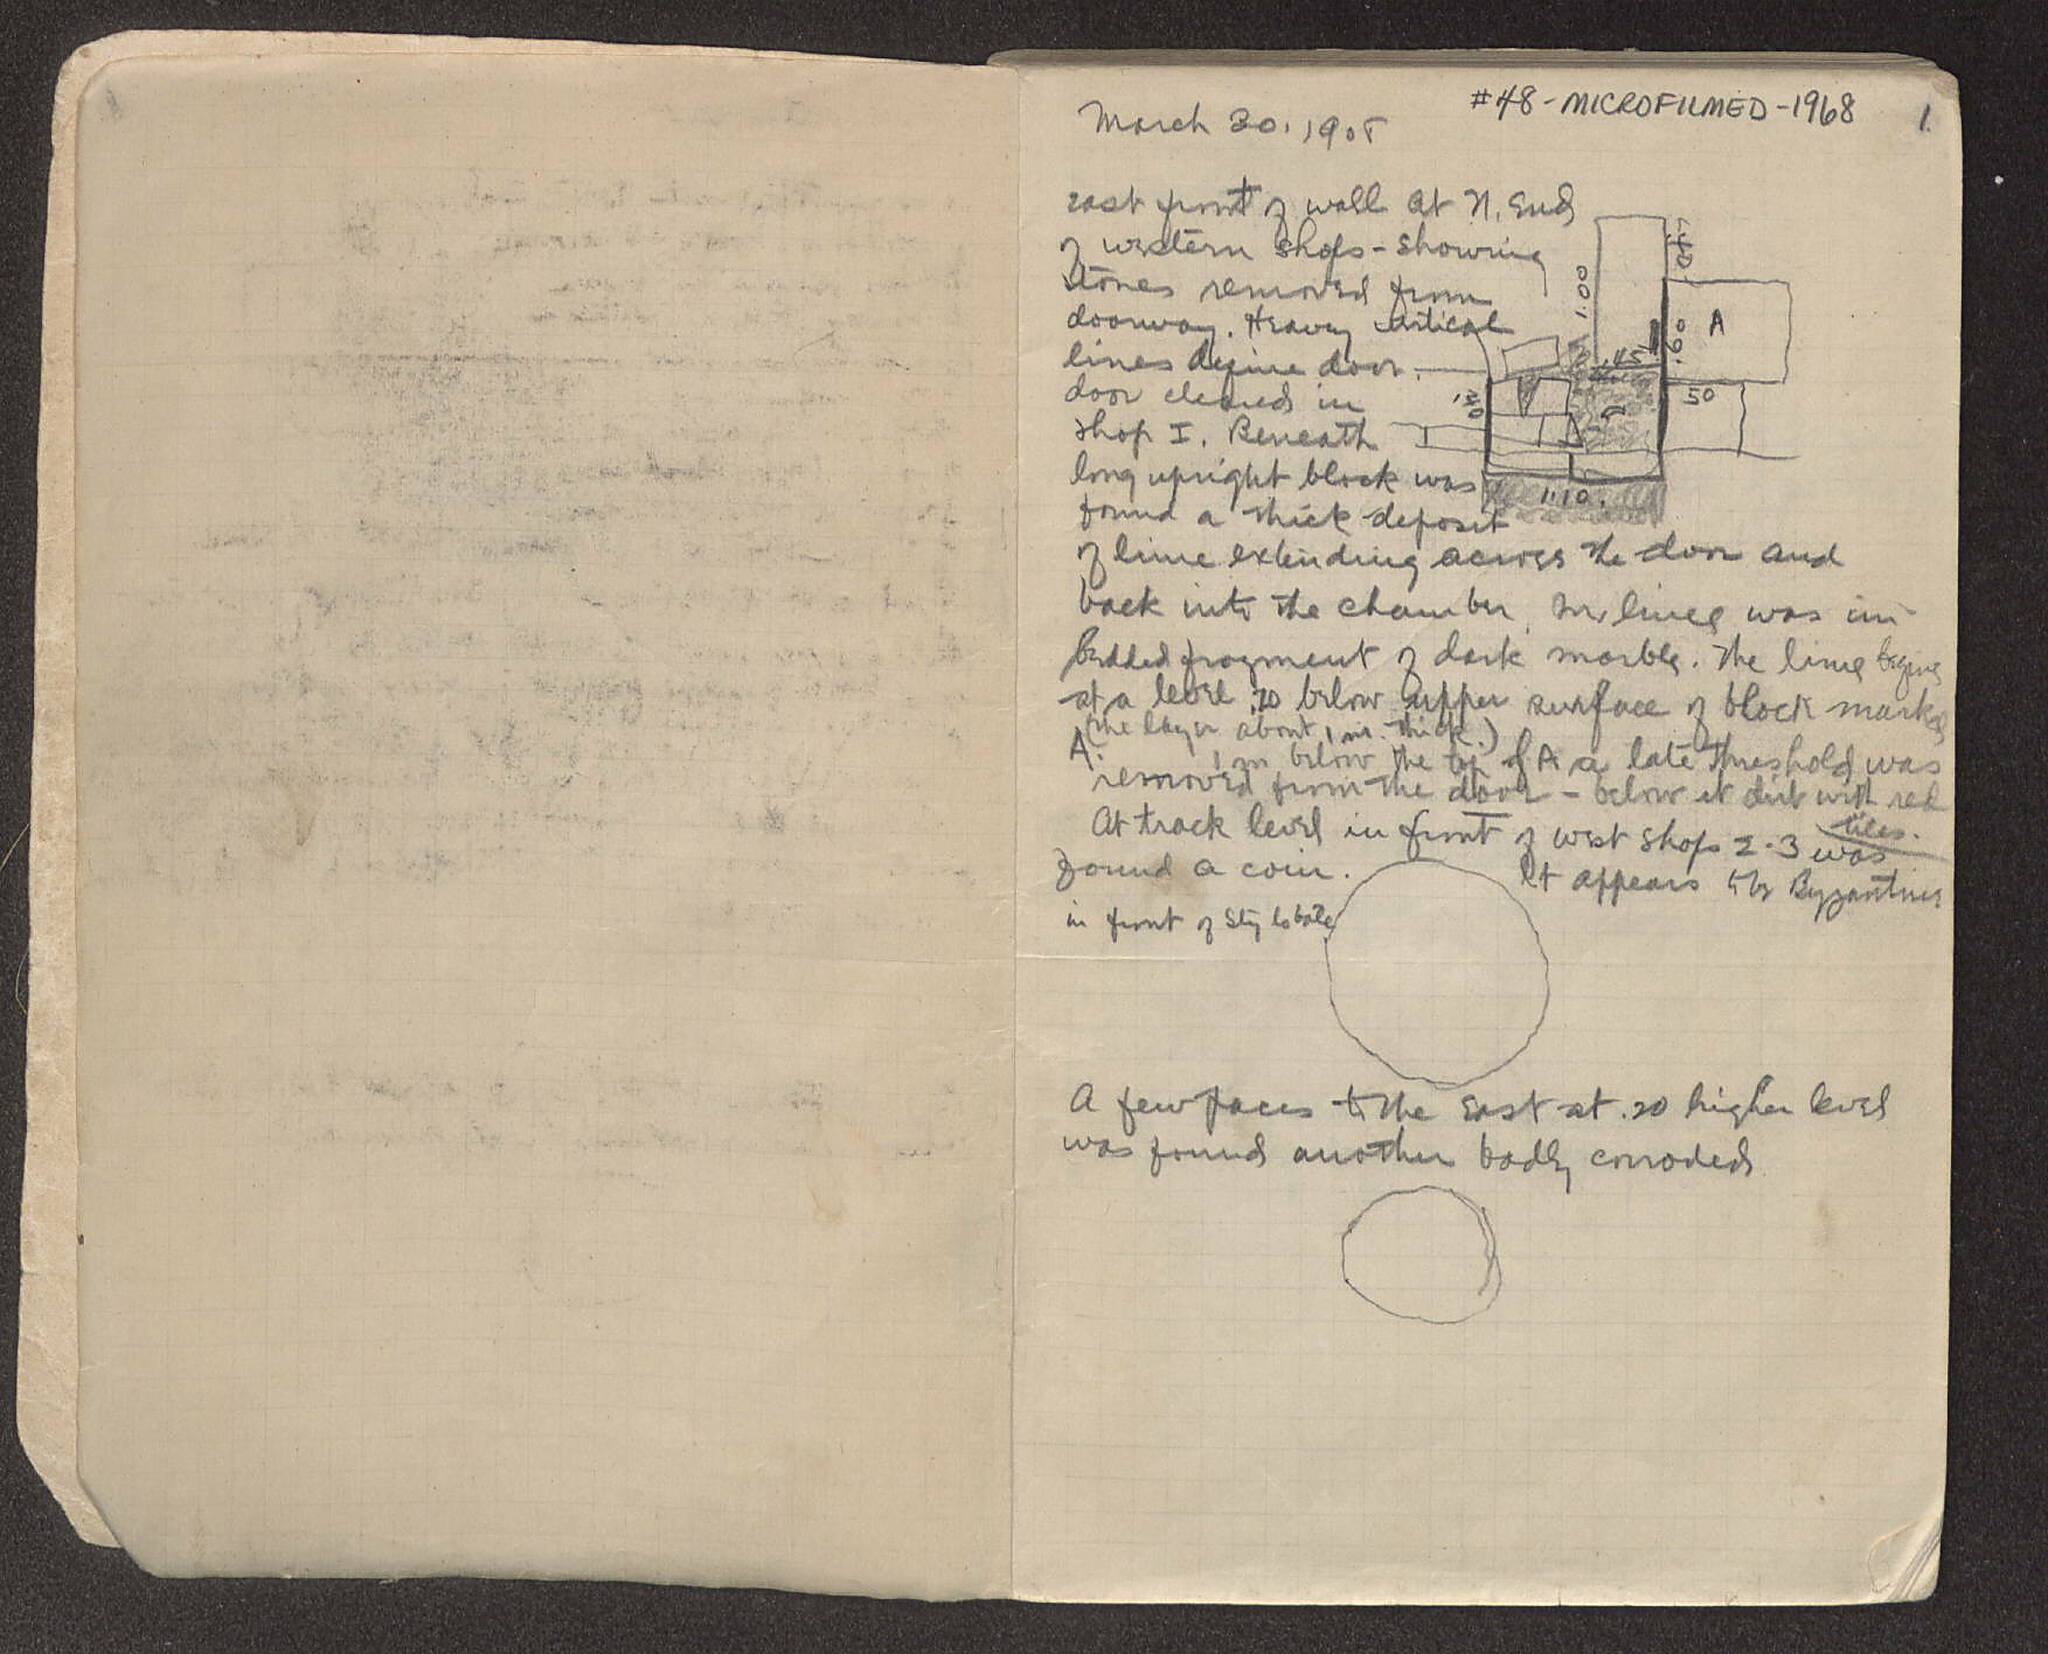 #48 - MICROFILMED - 1968
1.
March 30, 1905
East front of wall at N. End
of western shops - showing
stones removed from
doorway. Heavy vertical
lines define door.
door cleared in
shop I. Beneath
long upright block was
found a thick deposit
of lime extending across the door and
back into the chamber. lime was im
bedded fragment of dark marble. The lime begins
at a level .20 below upper surface of block marked
(the layer about 1 m. thick.)
A. 1 m below the top of A a late threshold was
removed from the door - below it dirt with red
tiles.
At track level in front of west shops 2-3 was
found a coin. It appears to be Byzantine
in front of Stylobate
A few paces to the East at .20 higher level
was found another badly corroded
1.00
.40
A
.60
.45
50
1.10.